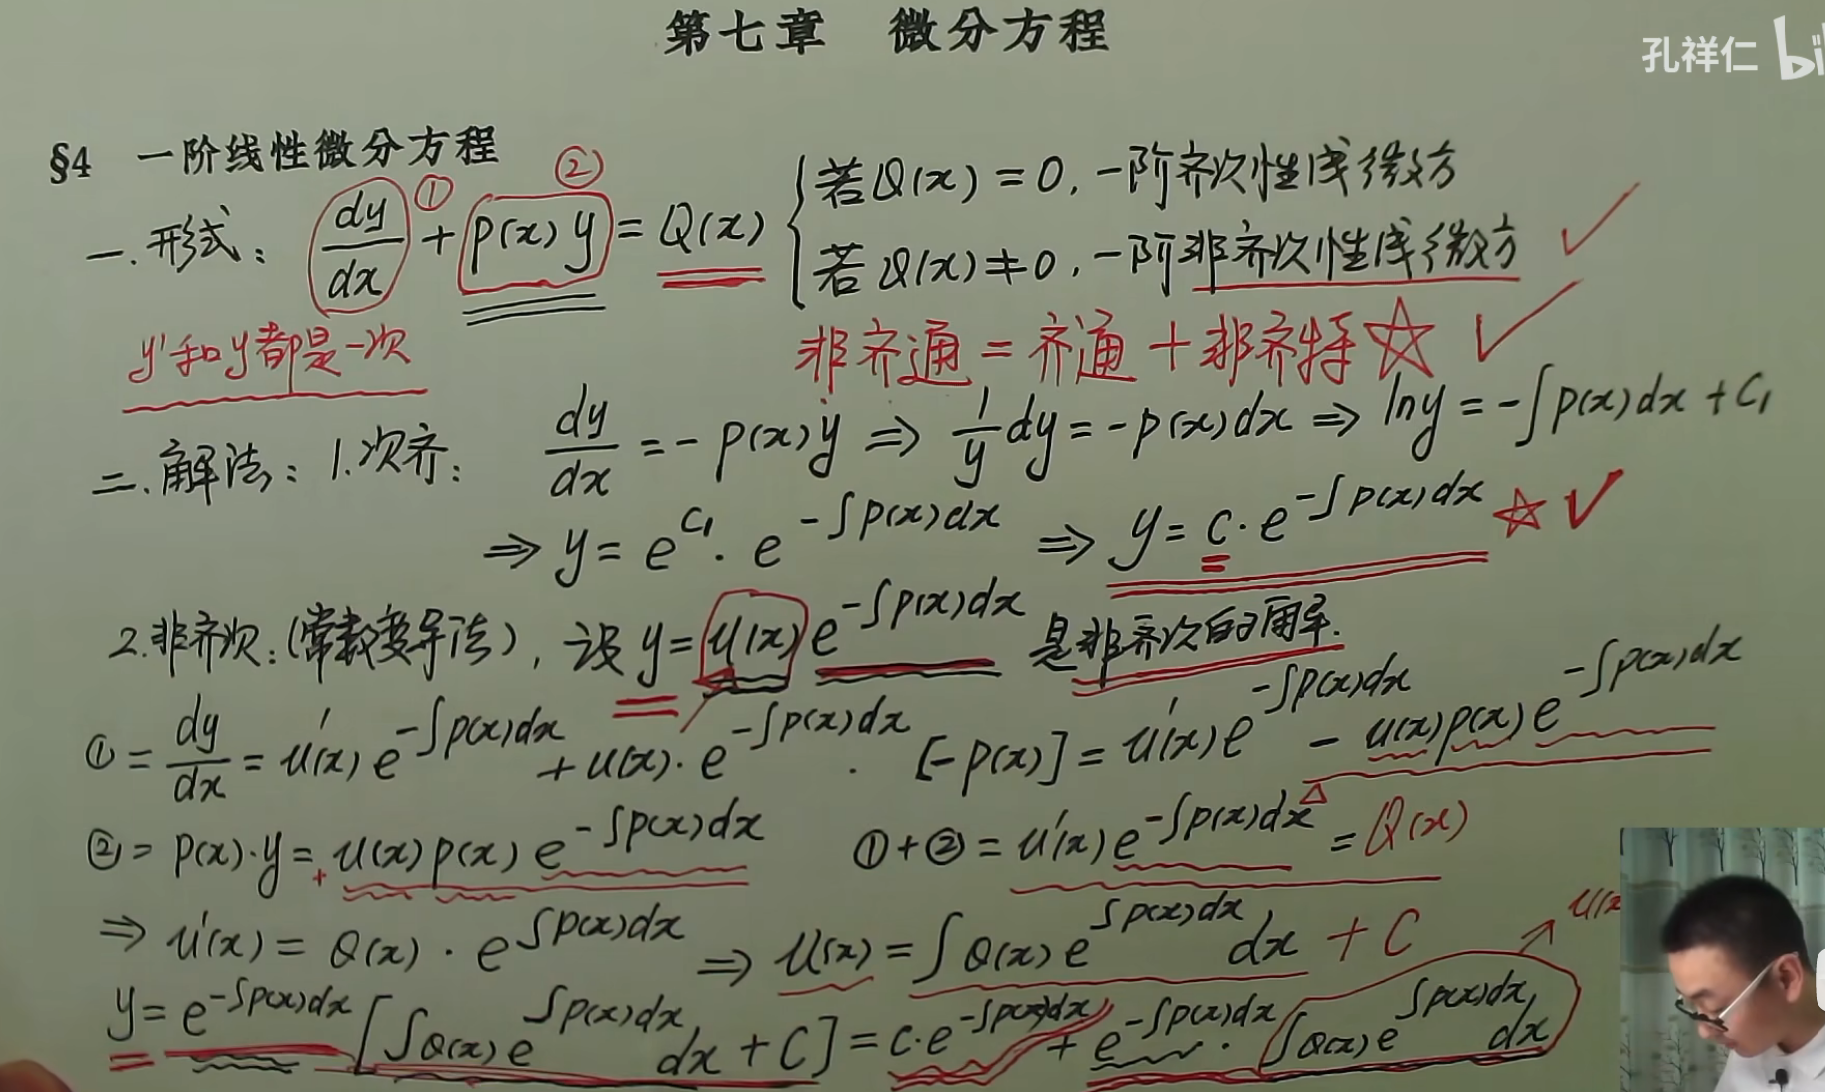 第七章 微分方程
孔祥仁 bi
§4 一阶线性微分方程
一.形式: dy/dx ① + p(x) y ② = Q(x) { 若Q(x) = 0, 一阶齐次性线微方
若Q(x) ≠ 0, 一阶非齐次性线微方 ✓
y'和y都是一次
非齐通 = 齐通 + 非齐特 ☆ ✓
二.解法: 1.次齐: dy/dx = - p(x)y ⇒ 1/y dy = -p(x)dx ⇒ lny = -∫p(x)dx + C₁
⇒ y = e^C₁ · e^(-∫p(x)dx) ⇒ y = c · e^(-∫p(x)dx) ☆ ✓
2.非齐次: (常数变易法), 设 y = u(x) e^(-∫p(x)dx) 是非齐次的解.
① = dy/dx = u'(x) e^(-∫p(x)dx) + u(x) · e^(-∫p(x)dx) · [-p(x)] = u'(x) e^(-∫p(x)dx) - u(x)p(x) e^(-∫p(x)dx)
② = p(x)·y = + u(x) p(x) e^(-∫p(x)dx) ① + ② = u'(x) e^(-∫p(x)dx) △ = Q(x)
⇒ u'(x) = Q(x) · e^(∫p(x)dx) ⇒ u(x) = ∫Q(x) e^(∫p(x)dx) dx + C
u(x
y = e^(-∫p(x)dx) [∫Q(x) e^(∫p(x)dx) dx + C] = c·e^(-∫p(x)dx) + e^(-∫p(x)dx) · ∫Q(x) e^(∫p(x)dx) dx